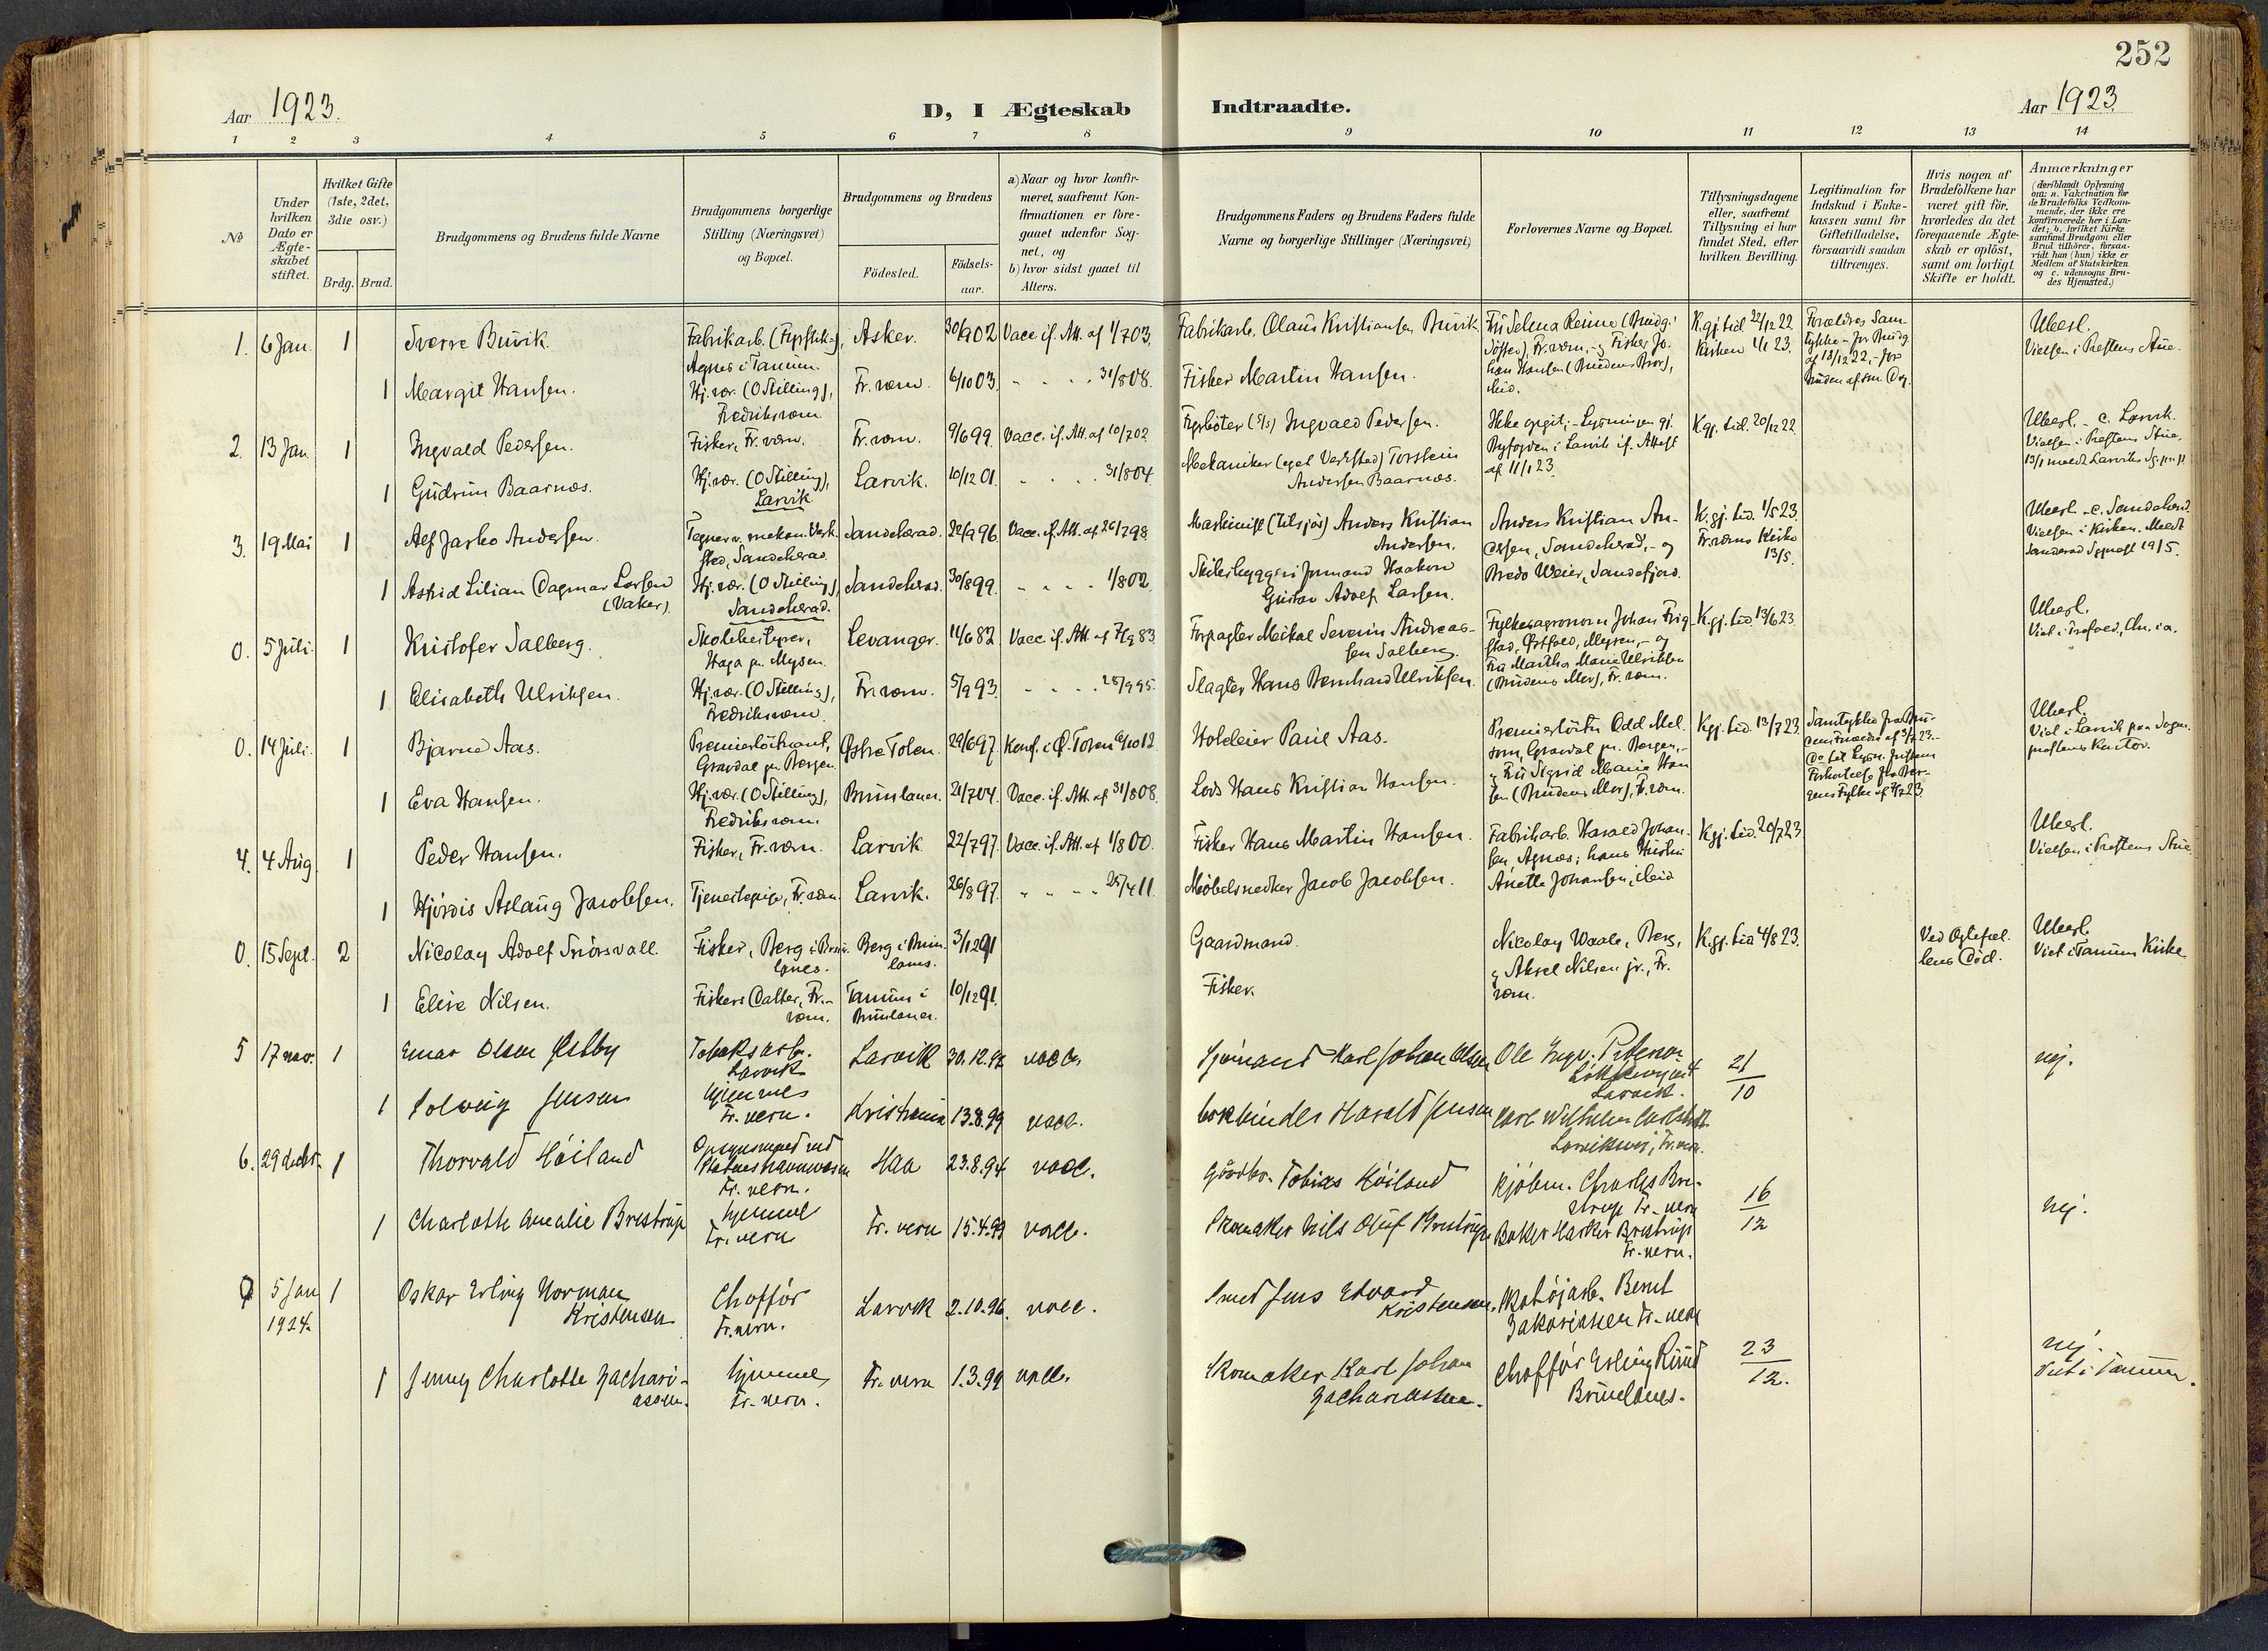 252
Aar 1923.
D, I Ægteskab Indtraadte.
Aar 1923
1 2 3 4 5 6 7 8 9 10 11 12 13 14
No
Under hvilken Dato er Ægteskabet stiftet.
Hvilket Gifte (1ste, 2det, 3die osv.)
Brdg. Brud.
Brudgommens og Brudens fulde Navne
Brudgommens borgerlige Stilling (Næringsvei) og Bopæl.
Brudgommens og Brudens
Födested.
Födsels-aar.
a) Naar og hvor konfir-
meret, saafremt Kon-
firmationen er fore-
gaaet udenfor Sog-
net, og
b) hvor sidst gaaet til
Alters.
Brudgommens Faders og Brudens Faders fulde
Navne og borgerlige Stillinger (Næringsvei)
Forlovernes Navne og Bopæl.
Tillysningsdagene
eller, saafremt
Tillysning ei har
fundet Sted, efter
hvilken Bevilling.
Legitimation for
Indskud i Enke-
kassen samt for
Giftetilladelse,
forsaavidt saadan
tiltrænges.
Hvis nogen af
Brudefolkene har
været gift för,
hvorledes da det
foregaaende Ægte-
skab er oplöst,
samt om lovligt
Skifte er holdt.
Anmærkninger
(deriblandt Oplysning
om: a. Vakcination for
de Brudefolks Vedkom-
mende, der ikke ere
konfirmerede her i Lan-
det; b. hvilket Kirke-
samfund Brudgom eller
Brud tilhörer, forsaa-
vidt han (hun) ikke er
Medlem af Statskirken
og c. udensogns Bru-
des Hjemsted.)
1. 6 Jan. 1 Sverre Buvik. Fabrikarb. Agnes i Tanum. Asker. 30/9 02 Vacc. if. Att. af 1/7 03. Fabrikarb. Olaus Kristiansen Buvik. Fru Selma Reime (Brudg. Söster), Fr.værn, - g Fisker Johan Hansen (Brudens Bror), ibid. K.gj. tid. 22/12 22. Kirken 1/1 23. Ubesl. Vielsen i Prestens Stue.
1 Margit Hansen. Hj.vær. (O Stilling), Fredriksværn. Fr.værn. 6/10 03. - - - - 31/8 08. Fisker Martin Hansen.
2. 13 Jan. 1 Ingvald Pedersen. Fisker, Fr.værn. Fr.værn. 9/6 99. Vacc. if. Att. af 10/7 02. Ingvald Pedersen. Ikke opgit; - Lysningen gj. Byfogden i Larvik if. Attest af 11/1 23. K.gj. tid. 20/12 22. Ubesl. - c. Larvik. Vielsen i Prestens Stue.
1 Gudrun Baarnæs. Hj.vær. (O Stilling), Larvik. Larvik. 10/12 01. - - - - 31/8 04. Mekaniker (eget Verksted) Torstein Andersen Baarnæs.
3. 19 Mai 1 Alf Jarbo Andersen. Tegner v. mekan. Verksted, Sandeherad. Sandeherad. 22/9 96. Vacc. if. Att. af 26/7 98. Maskinist (tilsjös) Anders Kristian Andersen. Anders Kristian Andersen, Sandeherad, - og Bredo Weier, Sandefjord. K.gj. tid. 1/5 23. Fr.værns Kirke 13/5. Ubesl. - c. Sandeherad. Vielsen i Kirken.
1 Astrid Lilian Dagmar Larsen (Vaker). Hj.vær. (O Stilling), Sandeherad. Sandeherad. 30/8 99. - - - 1/8 02. Skibsbyggeriformand Haakon Gustav Adolf Larsen.
0. 5 Juli. 1 Kristofer Salberg. Skolebestyrer, Haga pr. Mysen. Levanger. 11/6 82. Vacc. if. Att. af 7/9 83. Forpagter Mikal Severin Andreassen Salberg. Fylkesagronom Johan Frigstad, Østfold, Mysen, - og Fru Martha Marie Ulriksen (Brudens Mor), Fr.værn. K.gj. tid. 13/6 23. Ubesl.
1 Elisabeth Ulriksen. Hj.vær. (O Stilling), Fredriksværn. Fr.værn. 5/9 93. - - - - 28/9 95. Slagter Hans Bernhard Ulriksen.
0. 14 Juli. 1 Bjarne Aas. Premierlöitnant, Gravdal pr. Bergen. Østre Toten. 29/6 97. Konf. i Ø. Toten 6/10 12. Hoteleier Paul Aas. Premierlöitn. Odd Melsom, Gravdal pr. Bergen, - g Fru Sigrid Marie Hansen (Brudens Mor), Fr.værn. K.gj. tid. 13/7 23. Ubesl. Viet i Larvik paa Sogneprestens Kontor.
1 Eva Hansen. Hj.vær. (O Stilling), Fredriksværn. Brunlanes. 21/7 04. Vacc. if. Att. af 31/8 08. Lods Hans Kristian Hansen.
4. 4 Aug. 1 Peder Hansen. Fisker, Fr.værn. Larvik. 22/7 97. Vacc. if. Att. af 1/8 00. Fisker Hans Martin Hansen. Fabrikarb. Harald Johansen, Agnæs; hans Hustru Anette Johansen, ibid. K.gj. tid. 20/7 23. Ubesl. Vielsen i Prestens Stue.
1 Hjördis Aslaug Jacobsen. Tjenestepige, Fr.værn. Larvik. 26/8 97. - - - - 25/4 11. Möbelsnedker Jacob Jacobsen.
0. 15 Sept. 2 Nicolay Adolf Snörsvall. Fisker, Berg i Brunlanes. Berg i Brunlanes. 3/12 91 Gaardmand. Nicolay Waale, Berg, g Aksel Nilsen jr., Fr.værn. K.gj. tid 4/8 23. Ved Egtefællens Död. Ubesl. Viet i Tanum Kirke
1 Elise Nilsen. Fiskers Datter, Fr.værn. Tanum i Brunlanes. 10/12 91. Fisker.
5 17 nov. 1 Einar Olsen Østby Tobaksarb. Larvik Larvik 30.12.97 vacc. Sjömand Karl Johan Olsen Ole Ingv. Larvik. 21/10 nej.
1 Solveig Jensen hjemmes Fr.vern. Kristiania 13.8.99 vacc. bokbinder Harald Jensen Karl Wilhelm Larvikvei, Fr.vern.
6. 29 decbr. 1 Thorvald Höiland Opsynsmand ved Statens havnevæsen Fr.vern. Haa 23.8.94 vacc. Gårdbr. Tobias Höiland Kjöbm. Charles Brestrup Fr.vern 16/12 nej.
1 Charlotte Amalie Brestrup hjemme Fr.vern Fr.vern 15.4.99 vacc. Skomaker Nils Oluf Brestrup Baker Brestrup Fr.vern.
5 Jan 1924. 1 Oskar Erling Norman Kristensen Chofför Fr.vern. Larvik 2.10.96. vacc. Smed Jens Edvard Kristensen. Skotöjarb. Bernt Zakariassen Fr.vern 23/12. nej. Viet i Tanum.
1 Jenny Charlotte Zachariassen. hjemme Fr.vern. Fr.vern 1.3.99 vacc. Skomaker Karl Johan Zachariassen. Chofför Erling Ruud Brunlanes.